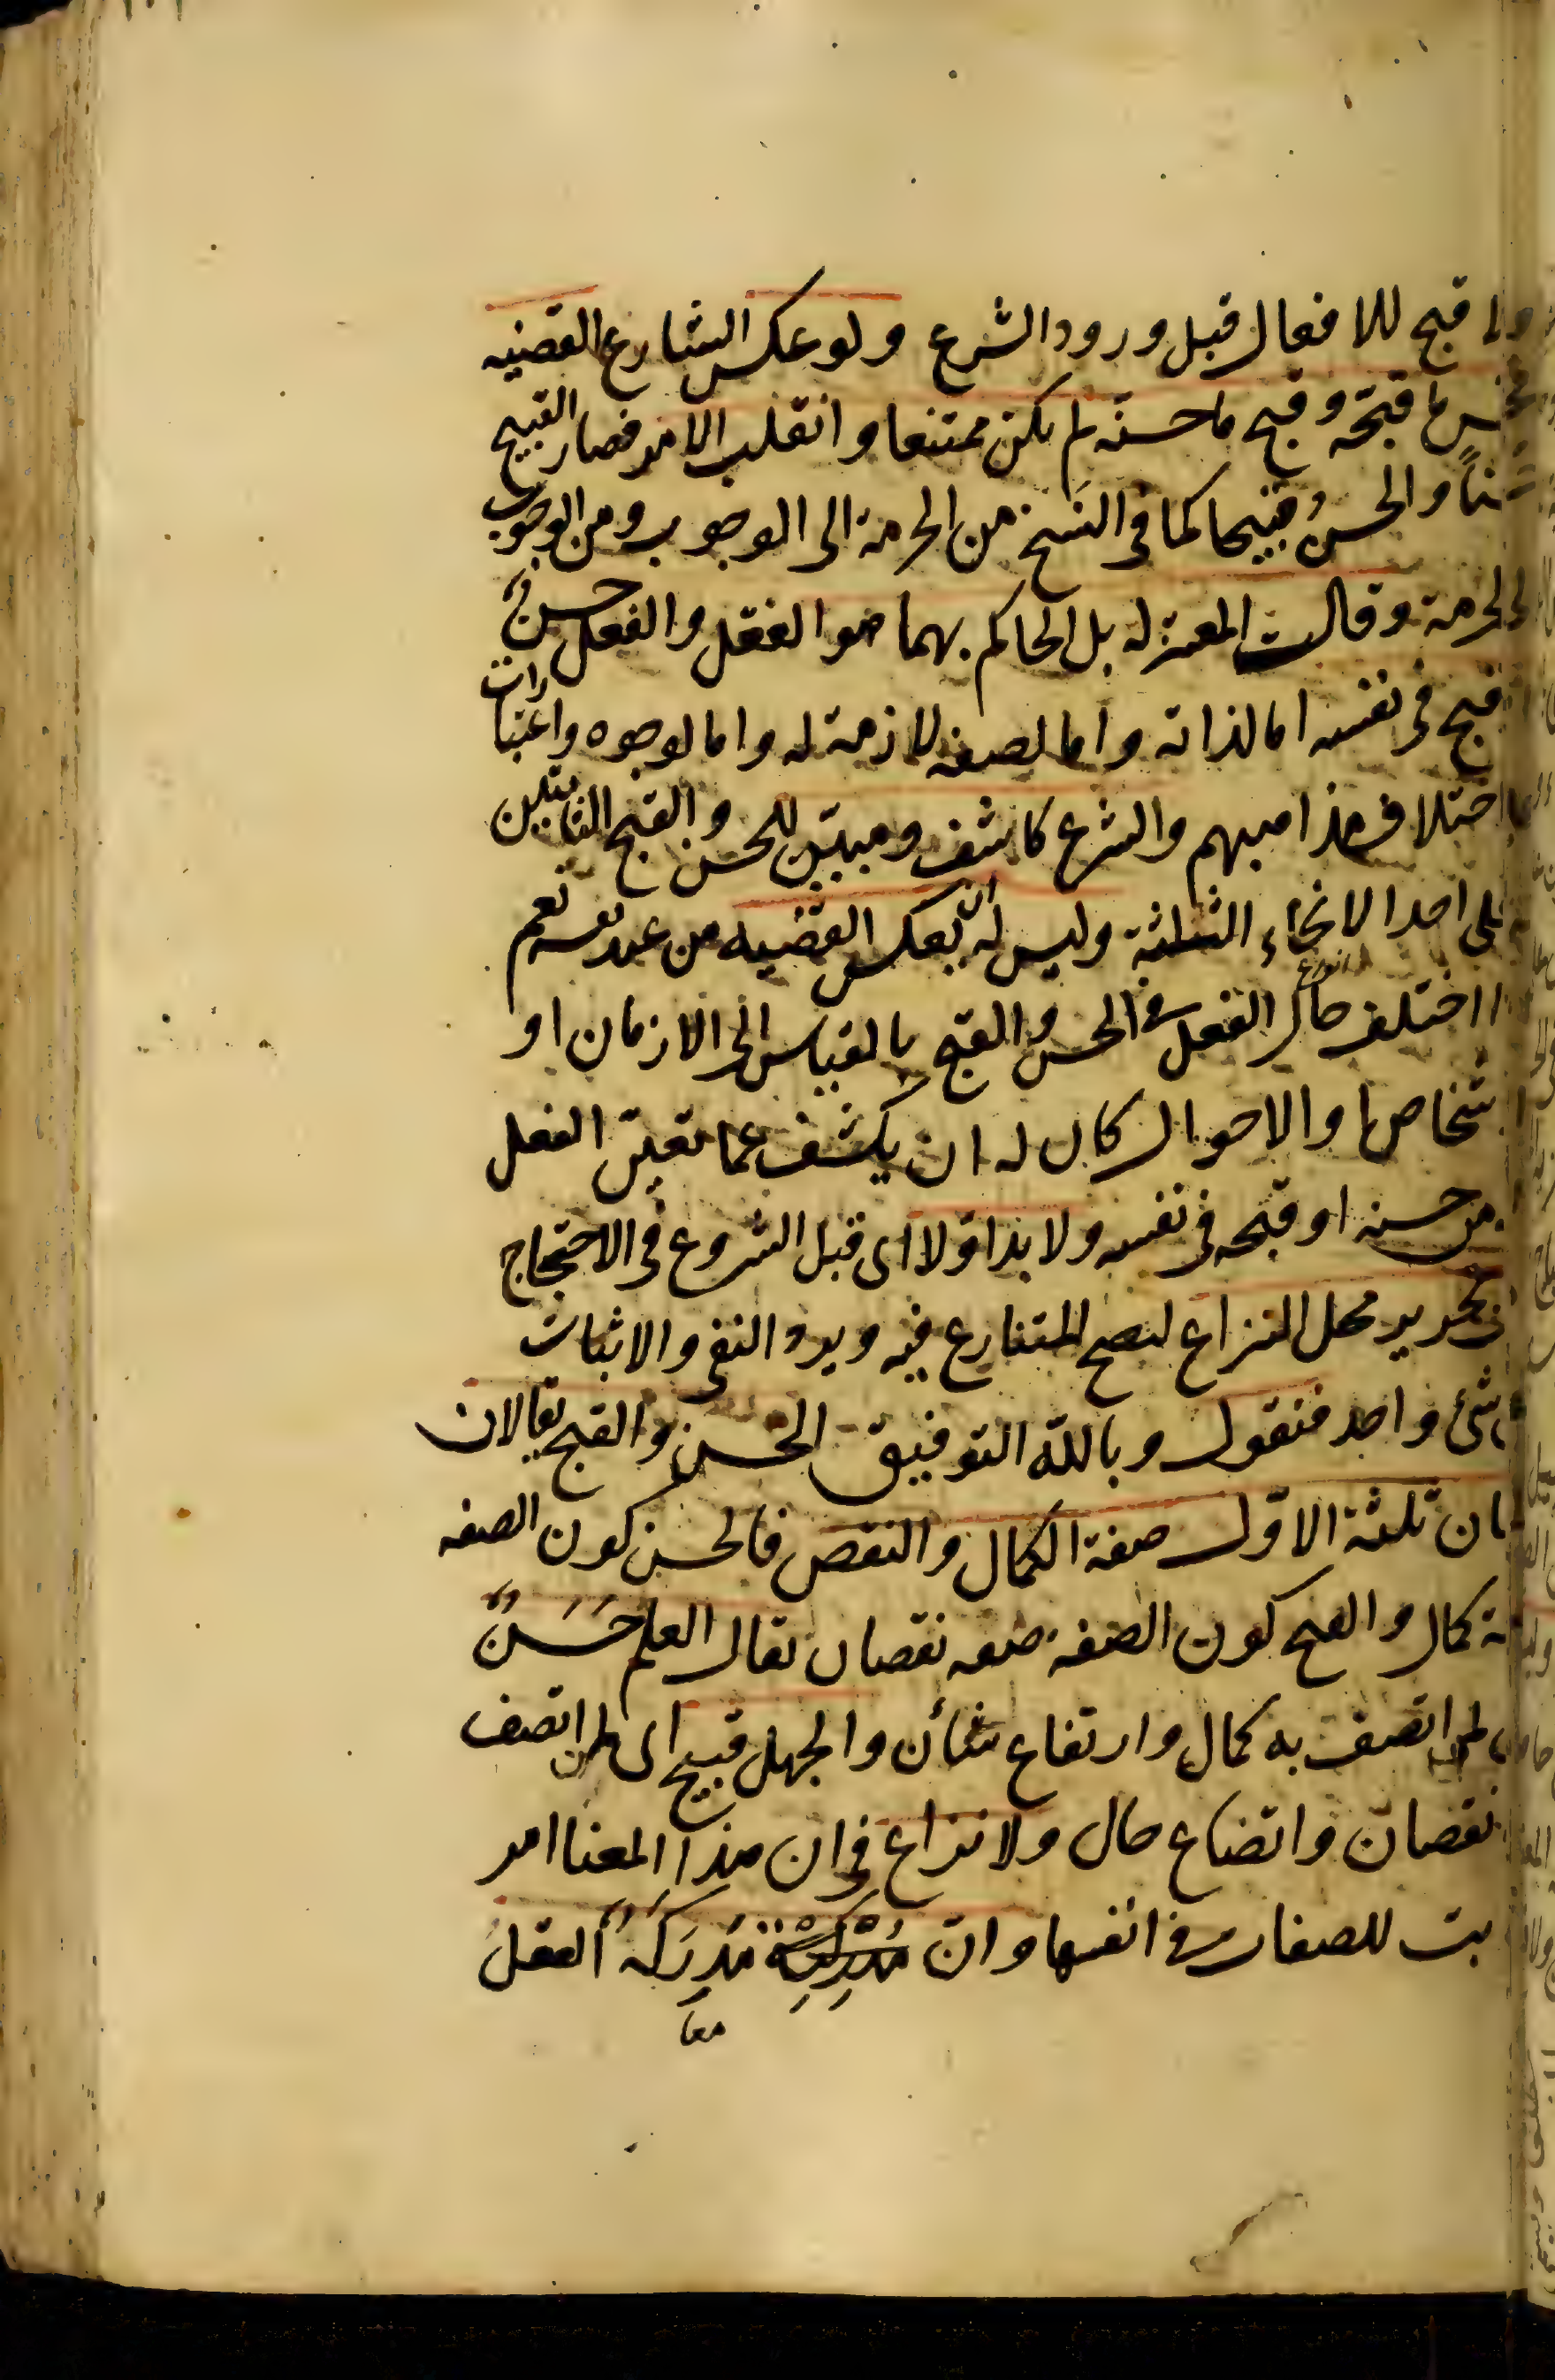 ولا قبح للافعال قبل ورود الشرع ولو عكس الشارع القضيه
فحسن ما قبحه وقبح ما حسنه لم يكن ممتنعا وانقلب الامر فصار القبيح
حسناً والحسنُ قبيحا كما فى النسخ من الحرمة الى الوجوب ومن الوجوب
الى الحرمة وقالت المعتزله بل الحاكم بهما هو العقل والفعل حسنٌ
قبح فى نفسه اما لذاته واما لصفه لازمة له واما لوجوه واعتبارات
اختلاف مذاهبهم والشرع كاشف ومبيّن للحسن والقبح الثابتين
على احد الانحاء الثلثة وليس له ان يعكس القضيه من عند نفسه نعم
اذا اختلف حال الفعل فى الحسن والقبح بالقياس الى الازمان او
انواع
شخاصها والاحوال كان له ان يكشف عما تغيّر الفعل
من حسنه او قبحه فى نفسه ولا بد اوّلا اى قبل الشروع فى الاحتجاج
من تحرير محل النزاع ليصح المتنازع فيه ويرد النفى والاثبات
شئ واحد فنقول وبالله التوفيق الحسن والقبح يقالان
ان ثلثة الاوّل صفة الكمال والنقص فالحسن كون الصفه
ة كمال والقبح كون الصفة صفه نقصان يقال العلم حَسَنٌ
لمن اتصف به كمال وارتفاع شأن والجهل قبيح اى لمن اتصف
نقصان واتضاع حال ولا نزاع فى ان هذا المعنا امر
بت للصفات فى انفسها وان مُدرِكه العقل
معا